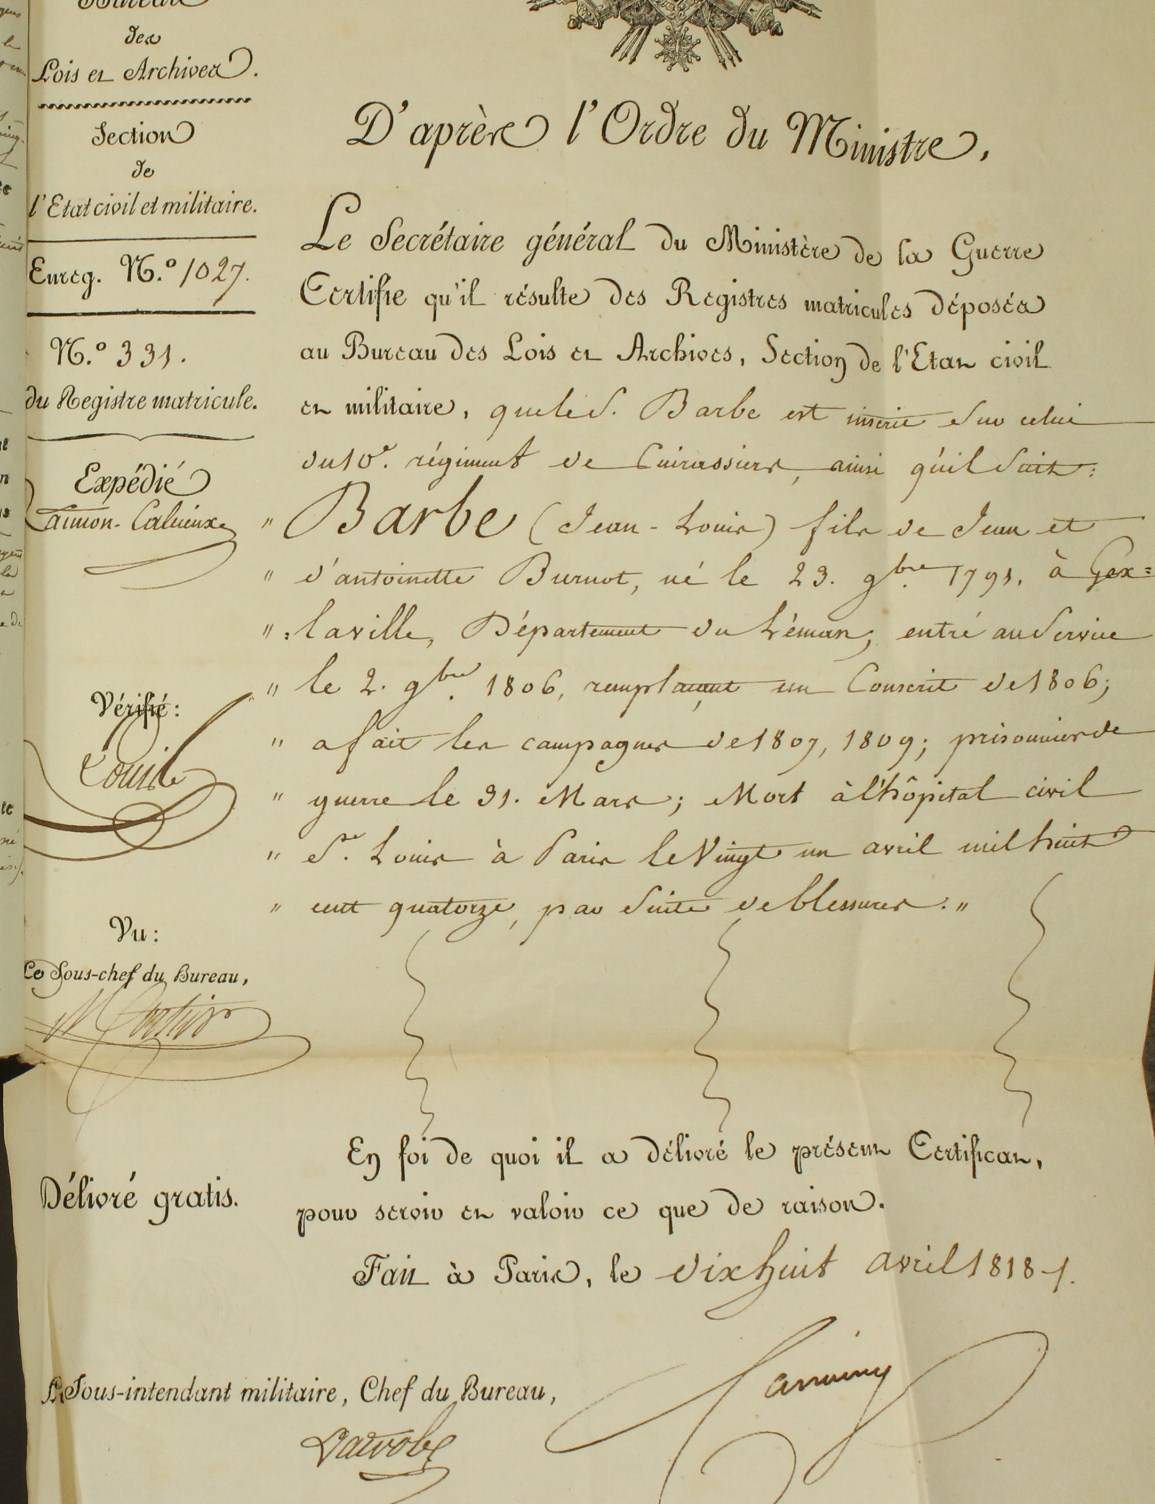 Bureau
des
Lois et Archives.
Section
de
l'Etat civil et militaire.
Enreg. N.º 1027.
N.º 331.
du Registre matricule.
Expédié
Vérifié:
Vu:
Le Sous-chef du Bureau,
Délivré gratis.
D'après l'Ordre du Ministre,
Le Secrétaire général du Ministère de la Guerre
Certifie qu'il résulte des Registres matricules déposés
au Bureau des Lois et Archives, Section de l'Etat civil
et militaire, que le S. Barbe est inscrit sur celui
du 10e. régiment de Cuirassiers, ainsi qu'il suit:
" Barbe (Jean-Louis) fils de Jean et
" d'antoinette Burnot, né le 23. 9bre. 1791. à Gex=
" =laville, Département du Léman, entré au Service
" le 2. 9bre. 1806, remplaçant un Conscrit de 1806;
" a fait les campagnes de 1807, 1809; prisonnier de
" guerre le 31. Mars; Mort à l'hôpital civil
" St. Louis à Paris le Vingt un avril mil huit
" cent quatorze, par suite de blessures. "
En foi de quoi il a délivré le présent Certificat,
pour servir et valoir ce que de raison.
Fait à Paris, le dix huit avril 1818 ./.
Le Sous-intendant militaire, Chef du Bureau,